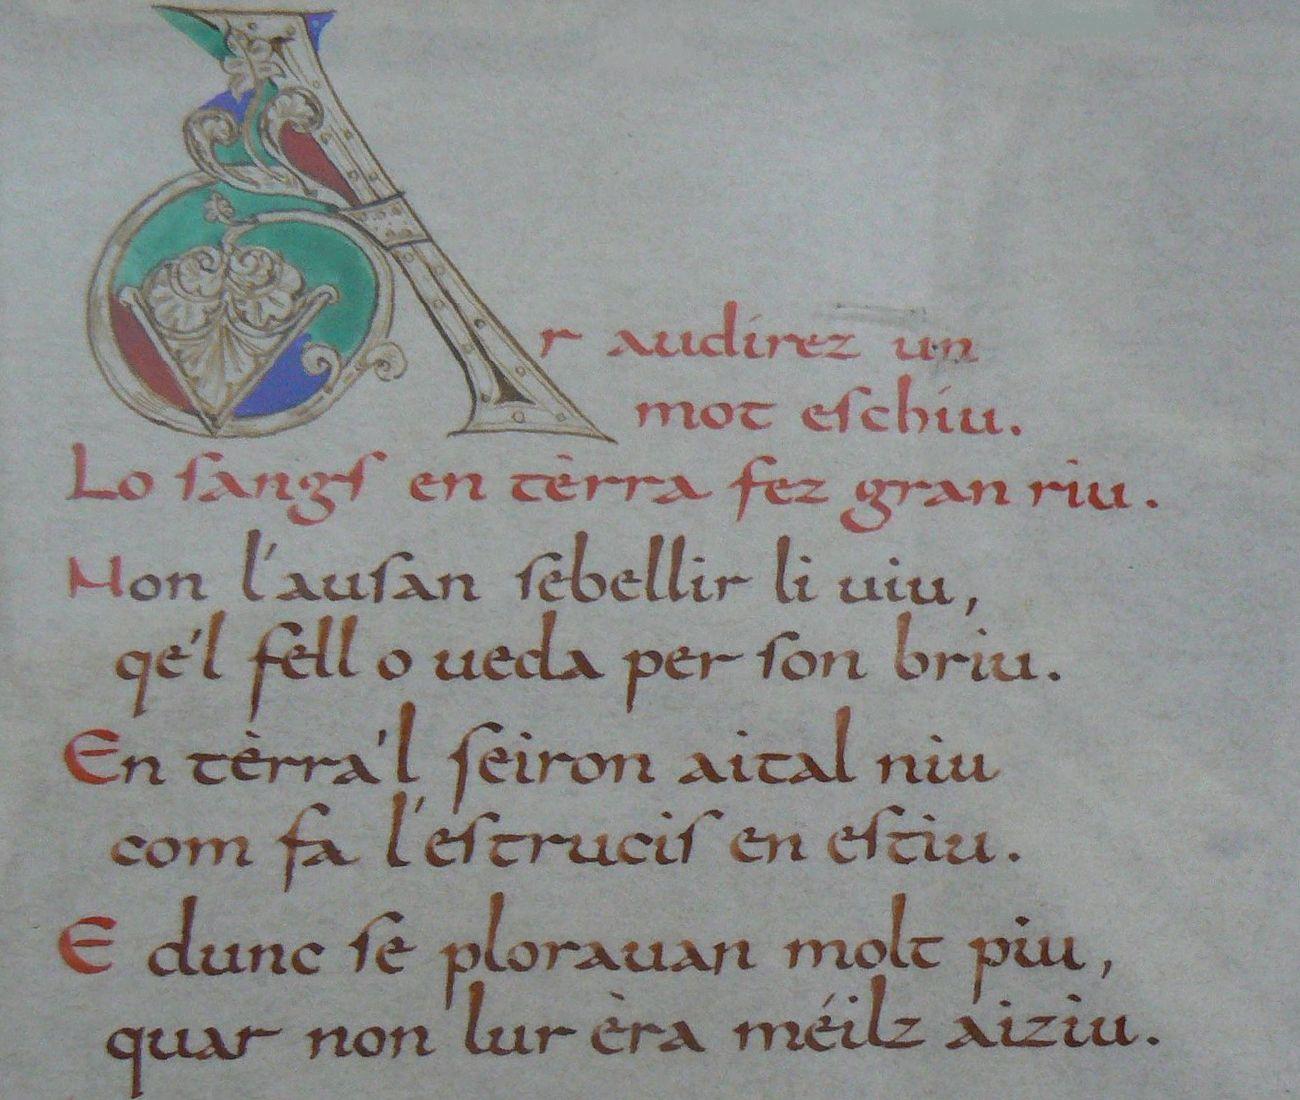 Ar audirez un
mot eschiu.
Lo sangs en tèrra fez gran riu.
Non l'ausan sebellir li uiu,
qe'l fell o ueda per son briu.
En tèrra'l seiron aital niu
com fa l'estrucis en estiu.
E dunc se plorauan molt piu,
quar non lur èra méilz aiziu.